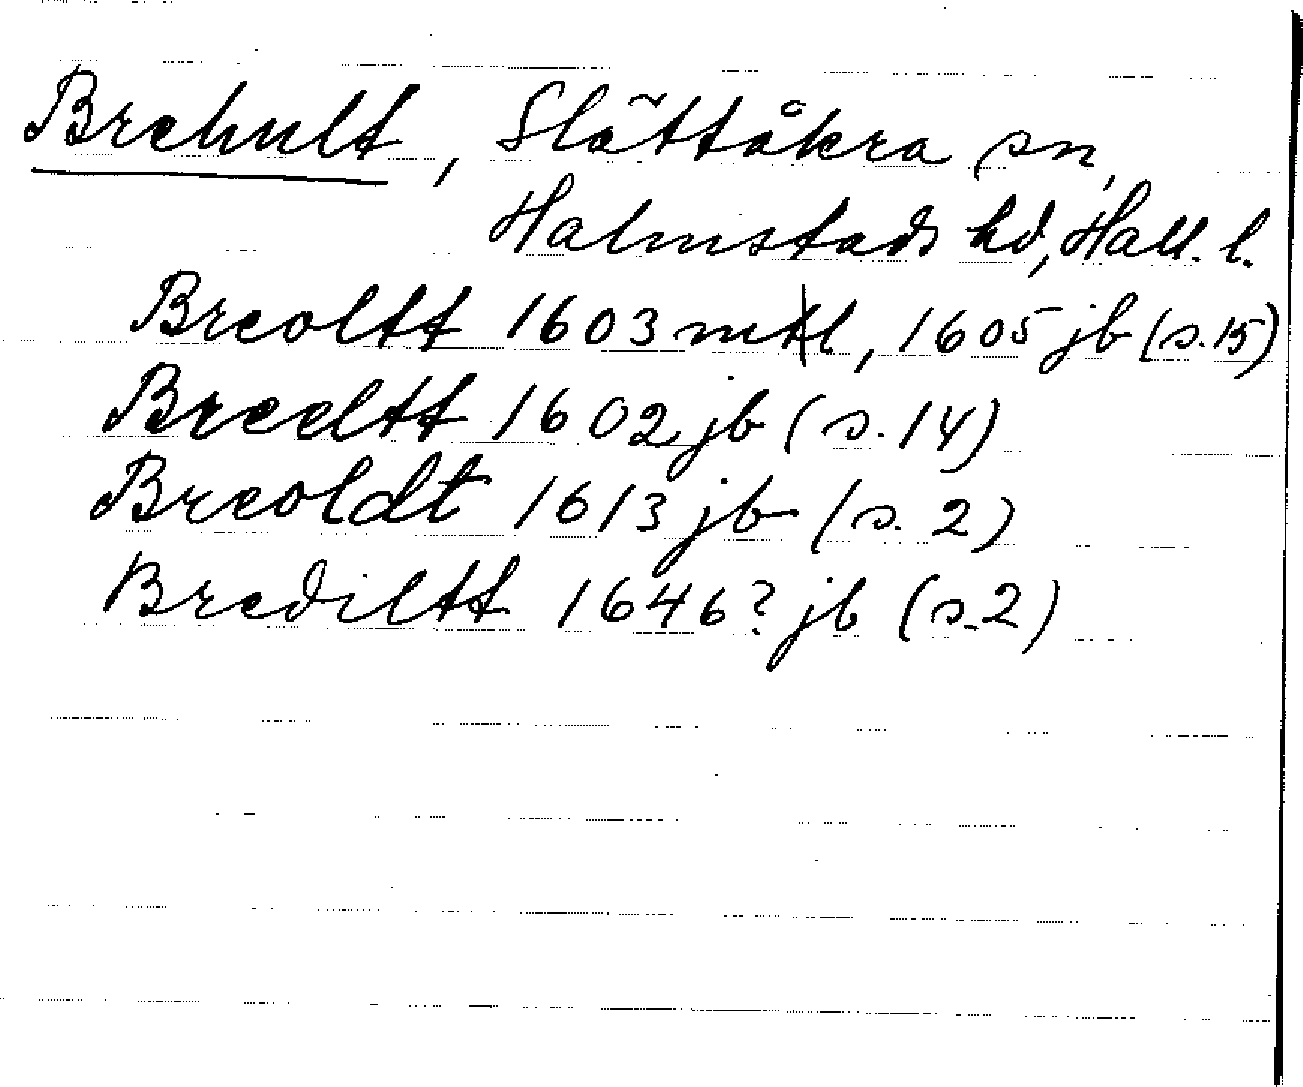 Brehult, Slättåkra sn,
Halmstads hd, Hall. l.
Breoltt 1603 mtl, 1605 jb (s. 15)
Breeltt 1602 jb (s. 14)
Breoldt 1613 jb (s. 2)
Brediltt 1646? jb (s. 2)